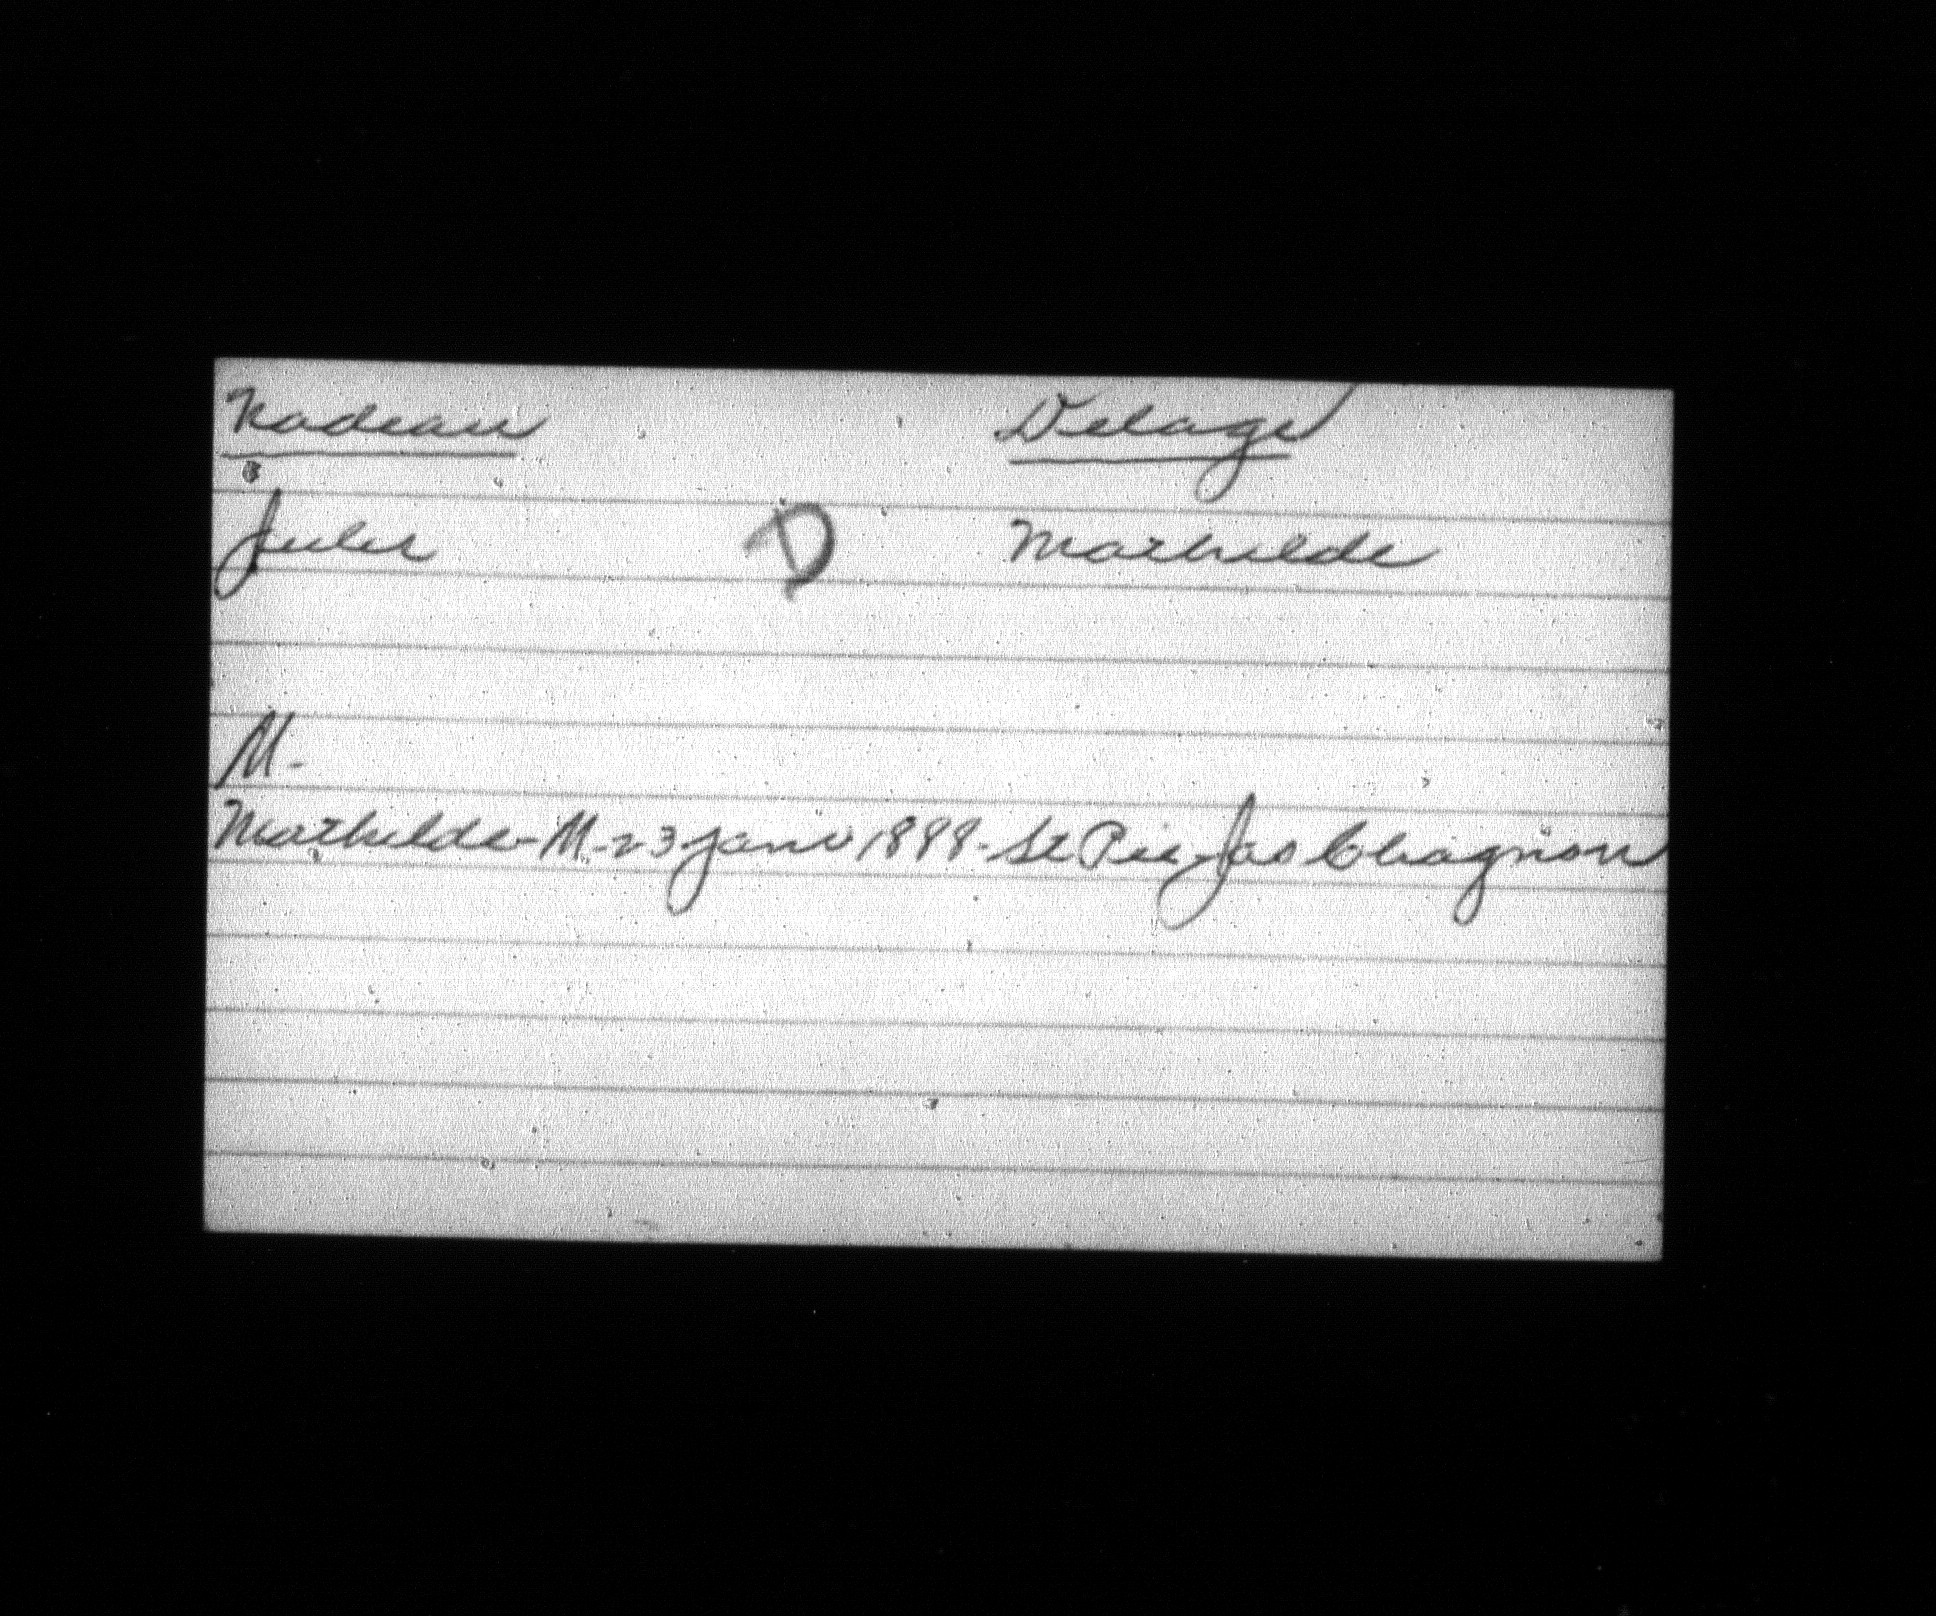 Nadeau Delage
Jules D Mathilde
M.
Mathilde - M. 23 janv 1888 - St Pie - Jas Chagnon